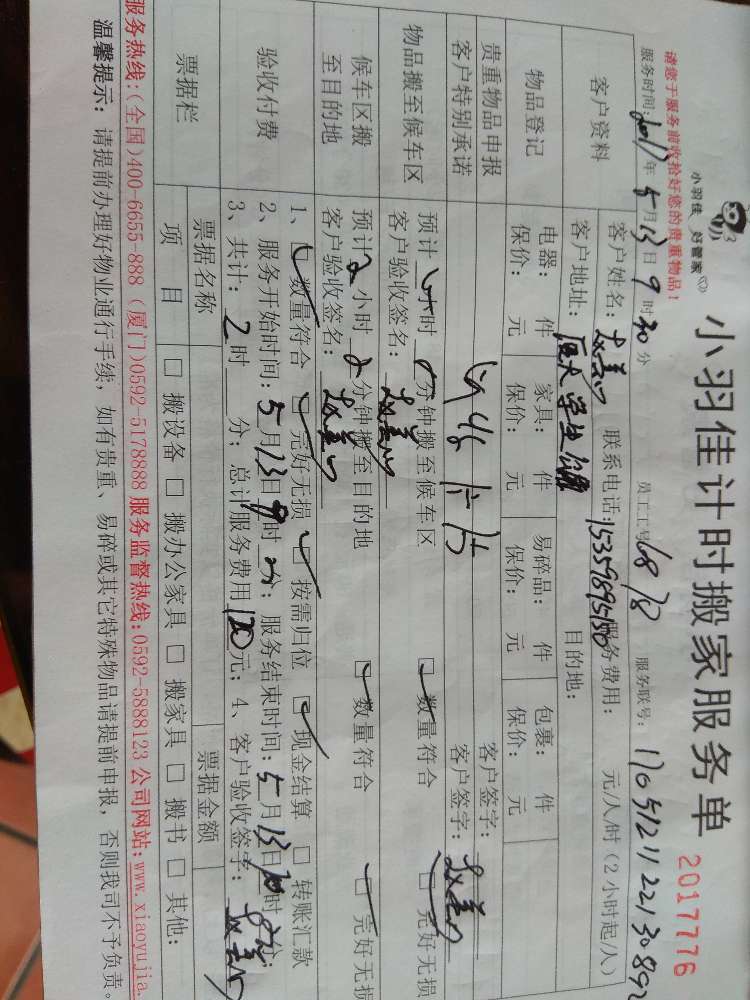 小羽佳 好管家
小羽佳计时搬家服务单
2017776
请您于服务前收拾好您的贵重物品!
服务时间:2017年5月13日9时30分 员工工号: 6878 服务联号: 170512112213089
客户资料 客户姓名: 联系电话: 服务费用: 元/人/时(2小时起/人)
客户地址: 目的地:
物品登记 电器: 件 家具: 件 易碎品: 件 包裹: 件
保价: 元 保价: 元 保价: 元 保价: 元
贵重物品申报 客户签字:
客户特别承诺 客户签字:
物品搬至候车区 预计 小时 分钟搬至候车区 □数量符合 □完好无损
客户验收签名:
候车区搬至目的地 预计2小时 分钟搬至目的地 □数量符合 □完好无损
客户验收签名:
验收付费 1、□数量符合 □完好无损 □按需归位 □现金结算 □转账汇款
2、服务开始时间:5月13日9时 分;服务结束时间:5月13日 时 分;
3、共计:2时 分;总计服务费用120元;4、客户验收签字:
票据栏 票据名称 票据金额
项目 □搬设备 □搬办公家具 □搬家具 □搬书 □其他:
服务热线:(全国)400-6655-888 (厦门)0592-5178888 服务监督热线:0592-5888123 公司网站:www.xiaoyujia.
温馨提示: 请提前办理好物业通行手续,如有贵重、易碎或其它特殊物品请提前申报,否则我司不予负责。